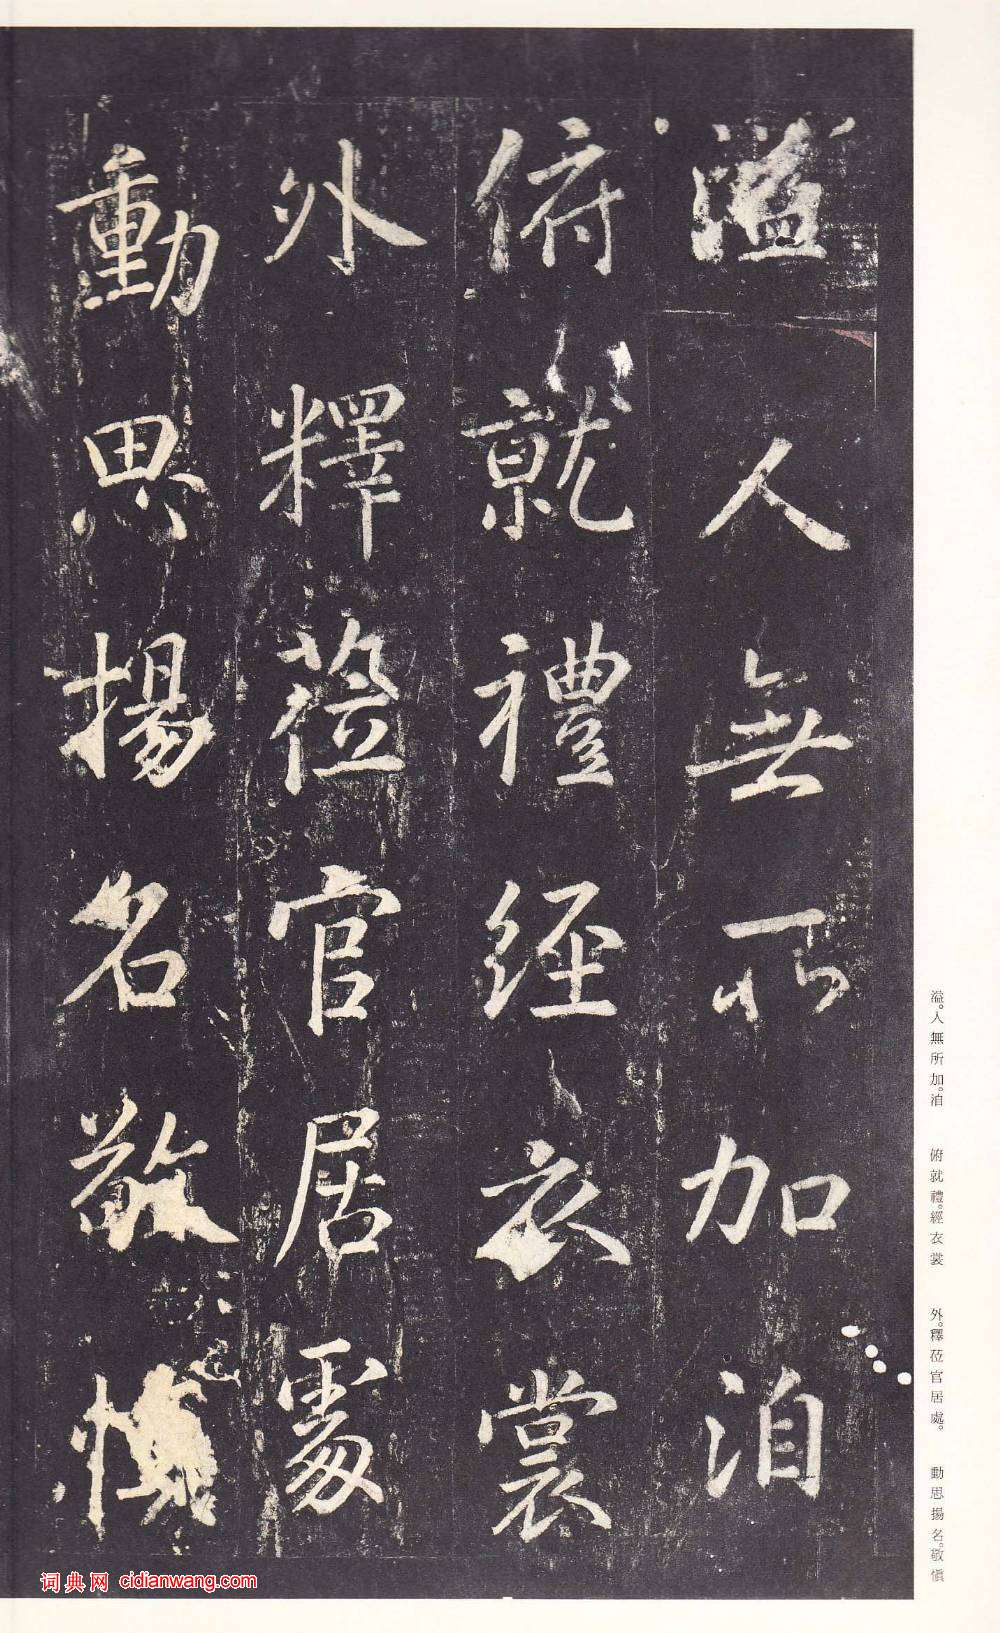 溢人無所加洎
俯就禮經衣裳
外釋莅官居處
動思揚名敬慎
溢。人無所加。洎　俯就禮。經衣裳　外。釋莅官居處。　動思揚名。敬愼
词典网 cidianwang.com